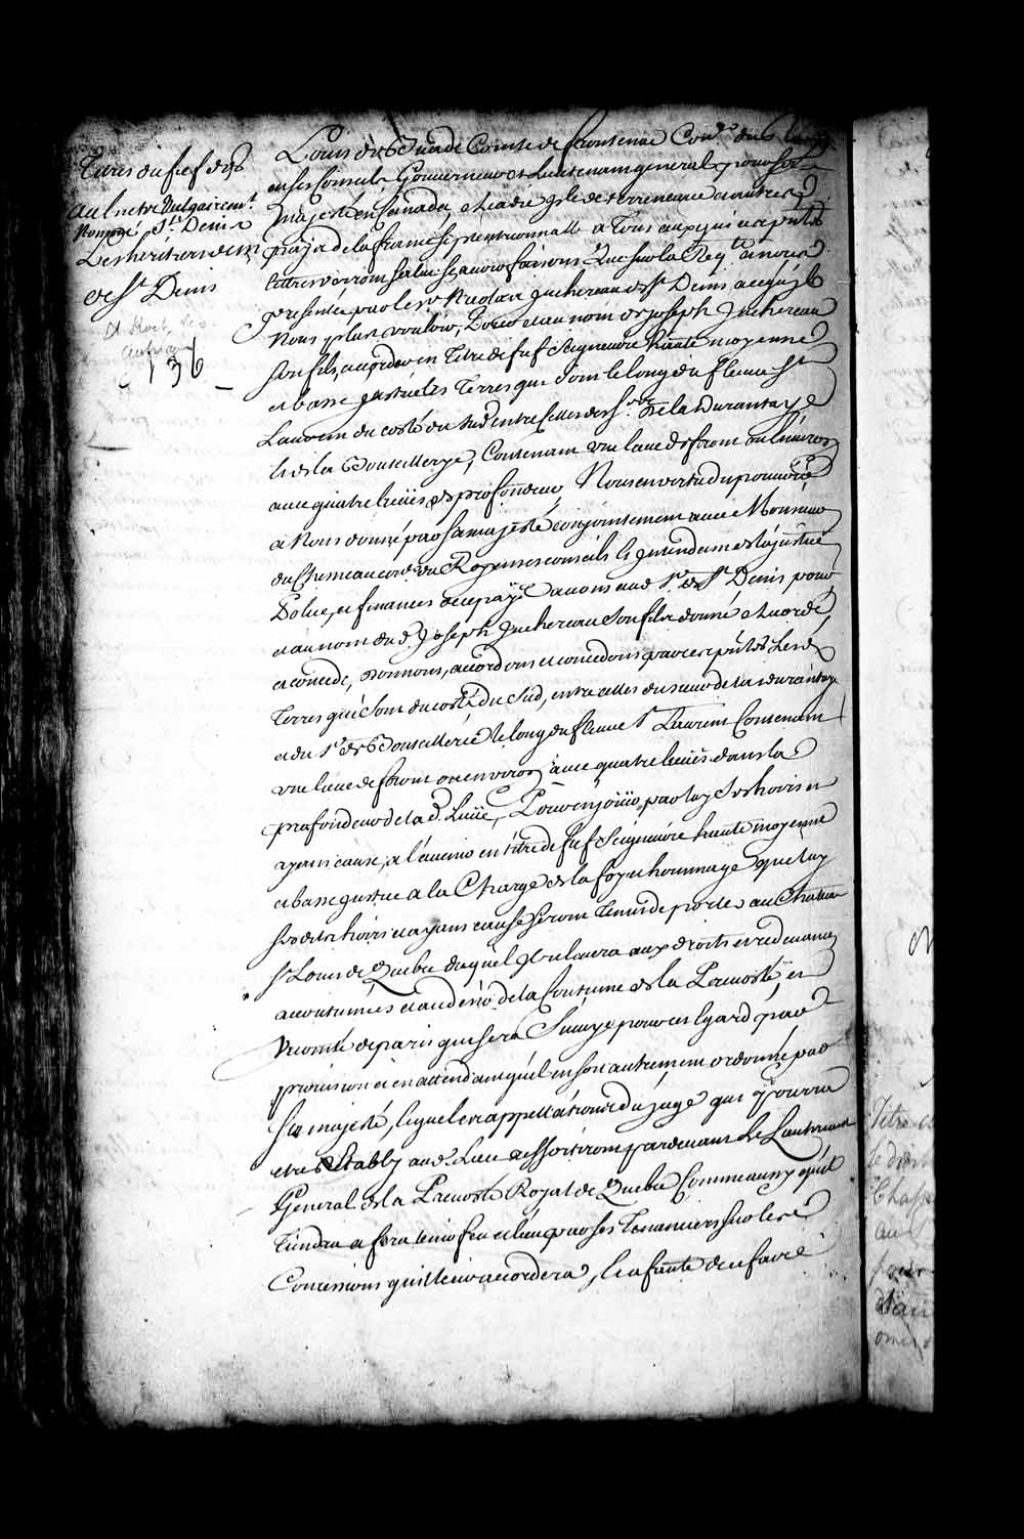 Titres du fief des
Aulnets Vulgairemt.
Nommé St. Denis
Les heritiers de Mr
de St Denis
136
Louis de Buade Comte de frontenac Coner. du Roy
en ses Conseils Gouverneur et Lieutenant general pour Sa
Majesté en Canada, Acadie Isle de terreneuve et autres
païs de la france septentrionnalle a Tous ceux qui ces pntes
lettres verront salut. sçavoir faisons Que sur la Reqte. a nous
presentée par le sr. Nicolas Juchereau de St Denis a ce qu'il
Nous plust vouloir, Pour et au nom de Joseph Juchereau
son fils, accorder en Titre de fief Seigneurie haute moyenne
et basse justice les Terres qui sont le long du fleuve St
Laurens du costé du Sud entre celles des Srs. de la Durantaye
et de la Bouteillerye, Contenant une lieue de front ou environ
avec quatre lieües de profondeur, Nous en vertu du pouvoir
a Nous donné par sa majesté conjointement avec Monsieur
du Chesneau coner. du Roy en ses conseils et Intendant de la justice
Police, et finances de ce païs avons aud. sr. de St Denis pour
et au nom dud. Joseph Juchereau son fils donné et accordé
et concedé, Donnons, accordons et concedons par ces pntes Lesd.
Terres qui sont du costé du Sud, entre celles du sieur de la durantaye
et du sr. de Bouteillerie le long du fleuve St Laurens Contenant
une lieue de front ou environ avec quatre lieües dans la
profondeur de lad. Lieüe, Pour en joüir par luy ses hoirs et
ayans cause, a l'avenir en titre de fief Seigneurie haute moyenne
et basse justice a la Charge de la foy et hommage que luy
sesdits hoirs et ayans cause seront Tenus de porter au Chateau
St Louis de Quebec duquel Il relevera aux droits et redevances
accoutumées et au desir de la Coutume de la Prevosté, et
Vicomté de paris qui sera Suivye pour cet Egard par
provision et en attendant qu'il en soit autrement ordonné par
Sa majesté, lequel les appellations du juge qui pourra
etre Etably aud. Lieu ressortiront pardevant Le Lieutenant
General de la Prevosté Royal de Quebec Comme aussy qu'il
Tiendra et fera tenir feu et lieu par ses Tenanciers sur les
Concessions qu'il leur accordera, et a faute de ce faire